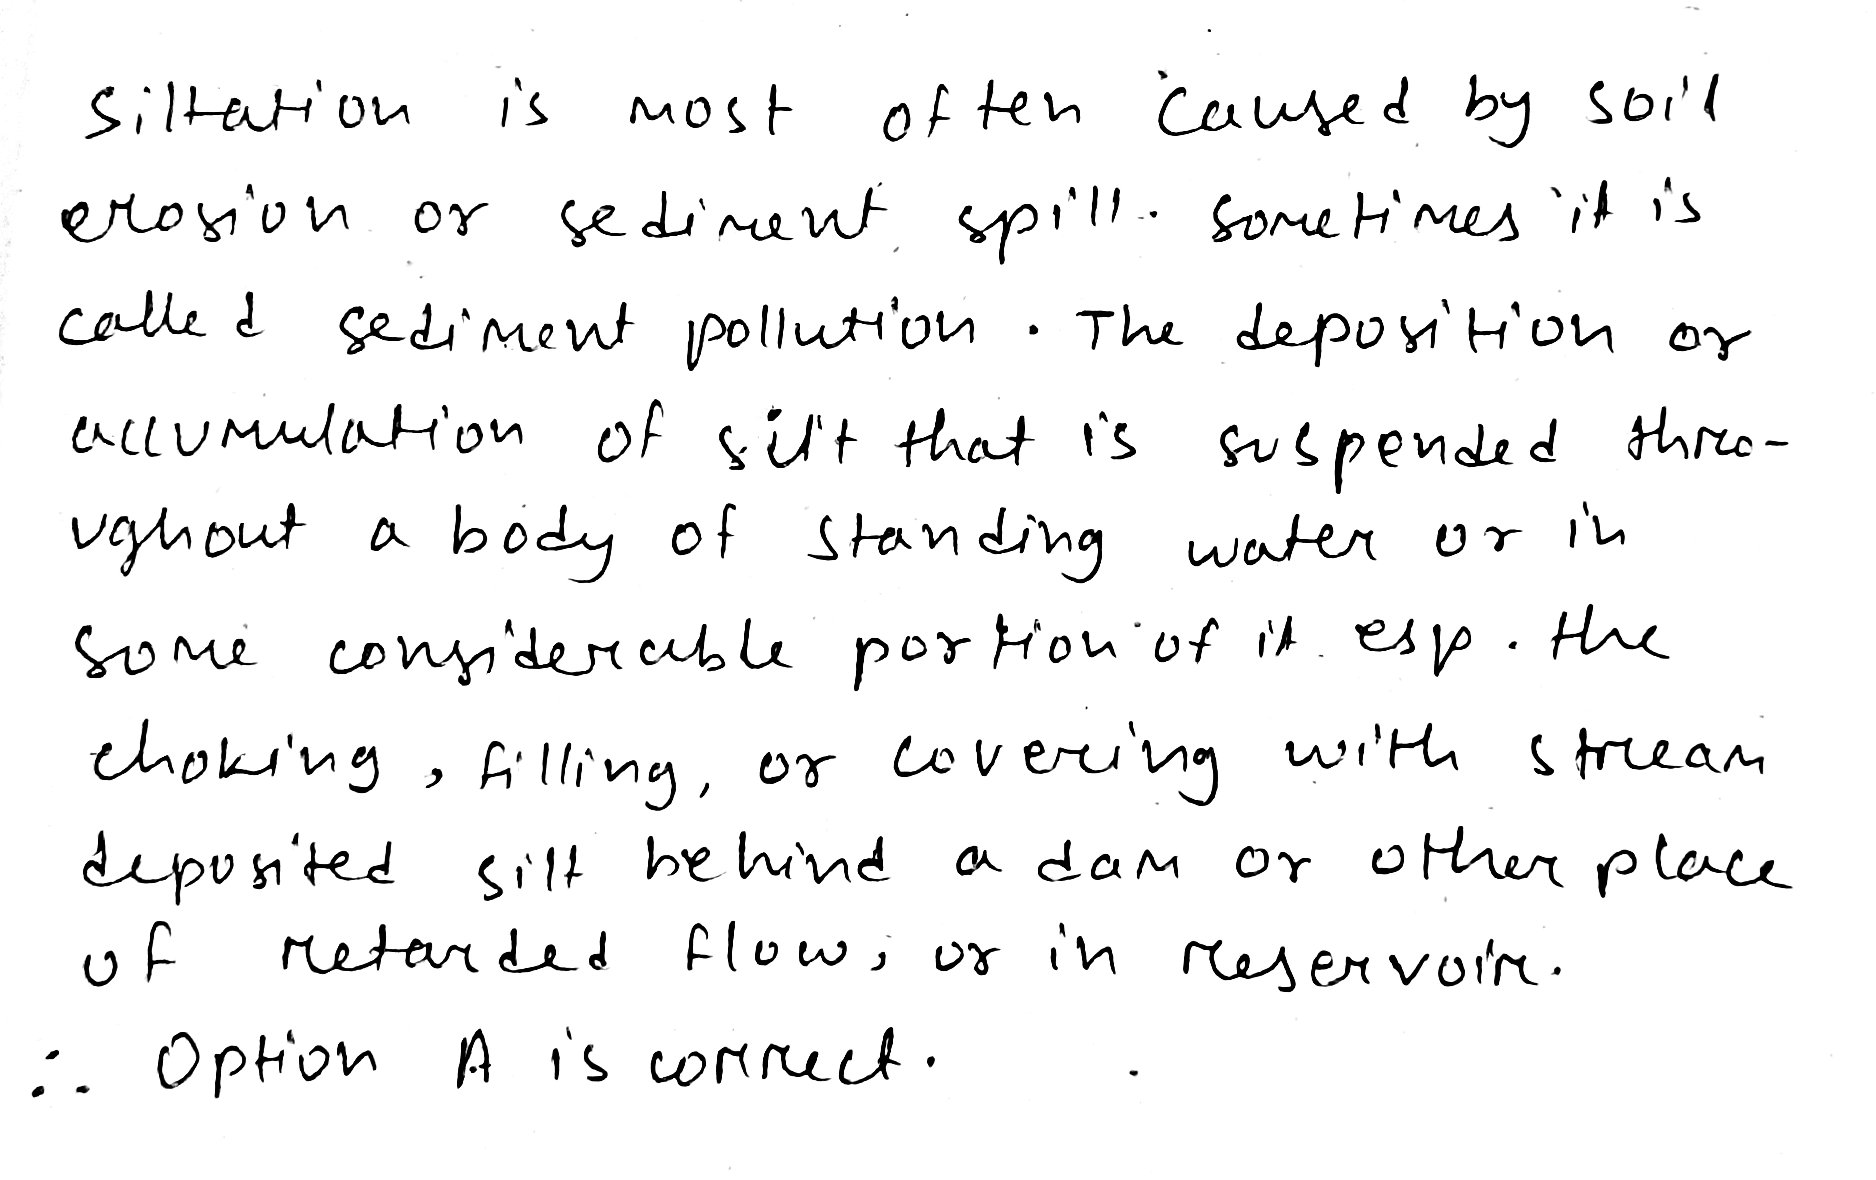 Siltation is most often caused by soil
erosion or sediment spill. Sometimes it is
called sediment pollution. The deposition or
accumulation of silt that is suspended thro-
ughout a body of standing water or in
some considerable portion of it esp. the
choking, filling, or covering with stream
deposited silt behind a dam or other place
of retarded flow, or in reservoir.
∴ Option A is correct.